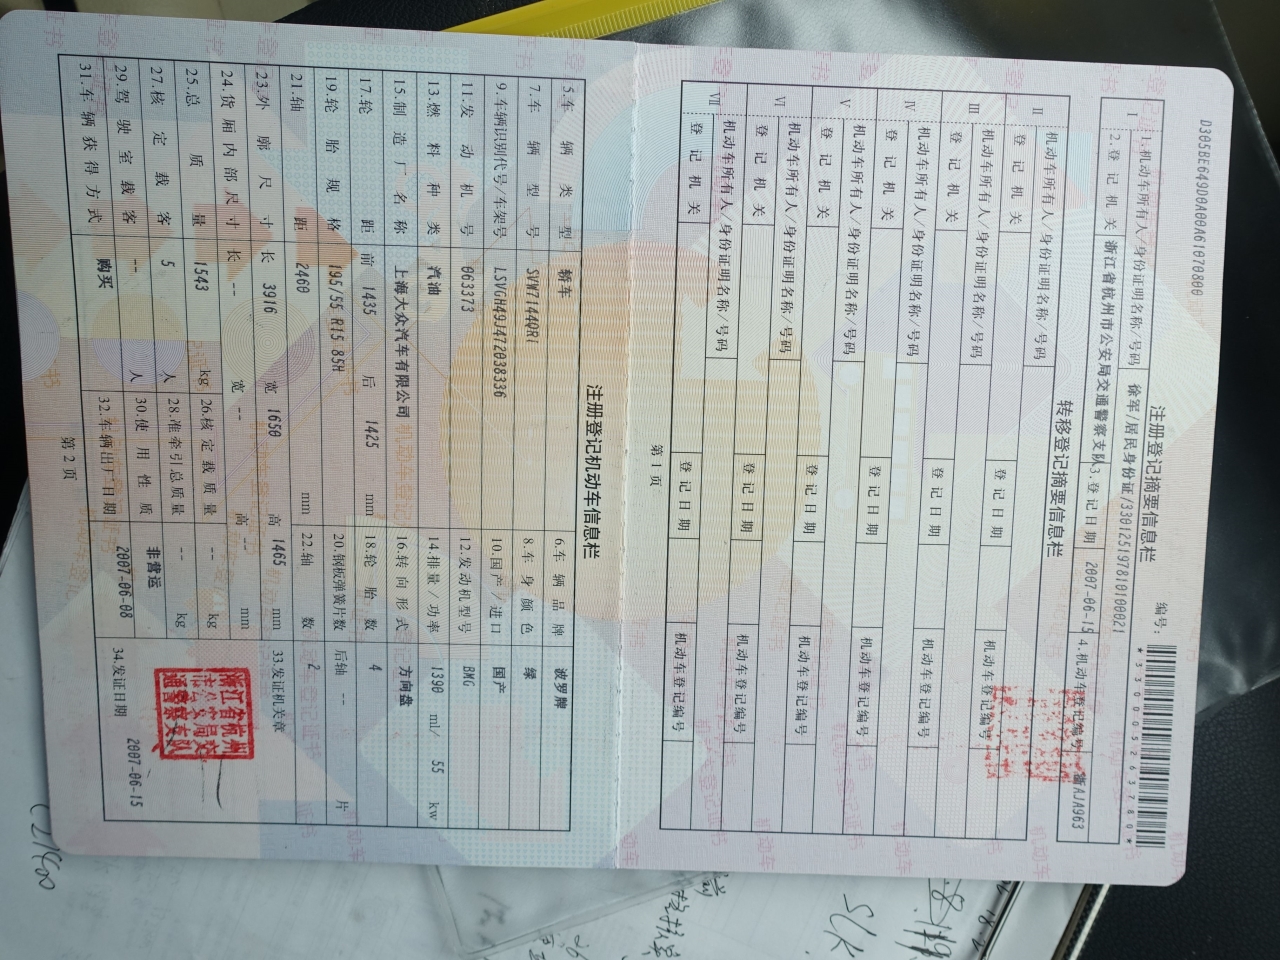 D305BE649D0A00A61070800
注册登记摘要信息栏
编号:
*330005263780*
I
1.机动车所有人/身份证明名称/号码 徐军/居民身份证/330125197810100021
2.登记机关 浙江省杭州市公安局交通警察支队 3.登记日期 2007-06-15 4.机动车登记编号 浙AJA963
转移登记摘要信息栏
II 机动车所有人/身份证明名称/号码
登记机关 登记日期 机动车登记编号
III 机动车所有人/身份证明名称/号码
登记机关 登记日期 机动车登记编号
IV 机动车所有人/身份证明名称/号码
登记机关 登记日期 机动车登记编号
V 机动车所有人/身份证明名称/号码
登记机关 登记日期 机动车登记编号
VI 机动车所有人/身份证明名称/号码
登记机关 登记日期 机动车登记编号
VII 机动车所有人/身份证明名称/号码
登记机关 登记日期 机动车登记编号
第1页
注册登记机动车信息栏
5.车辆类型 轿车 6.车辆品牌 波罗牌
7.车辆型号 SVW7144QRi 8.车身颜色 绿
9.车辆识别代号/车架号 LSVGH49J472038336 10.国产/进口 国产
11.发动机号 063373 12.发动机型号 BMG
13.燃料种类 汽油 14.排量/功率 1390 ml/ 55 kw
15.制造厂名称 上海大众汽车有限公司 16.转向形式 方向盘
17.轮距 前 1435 后 1425 mm 18.轮胎数 4
19.轮胎规格 195/55 R15 85H 20.钢板弹簧片数 后轴 -- 片
21.轴距 2460 mm 22.轴数 2
23.外廓尺寸 长 3916 宽 1650 高 1465 mm 33.发证机关章
24.货厢内部尺寸 长 -- 宽 -- 高 -- mm
25.总质量 1543 kg 26.核定载质量 -- kg
27.核定载客 5 人 28.准牵引总质量 -- kg
29.驾驶室载客 -- 人 30.使用性质 非营运
31.车辆获得方式 购买 32.车辆出厂日期 2007-06-08 34.发证日期 2007-06-15
第2页